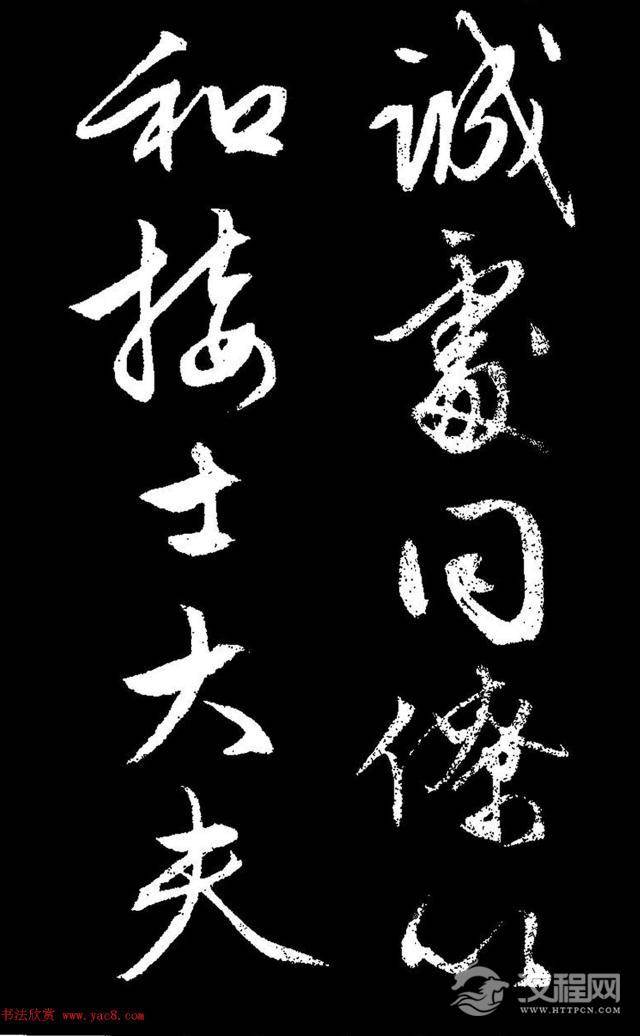 誠處同僚以
和接士大夫
书法欣赏 www.yac8.com
汉程网
WWW.HTTPCN.COM